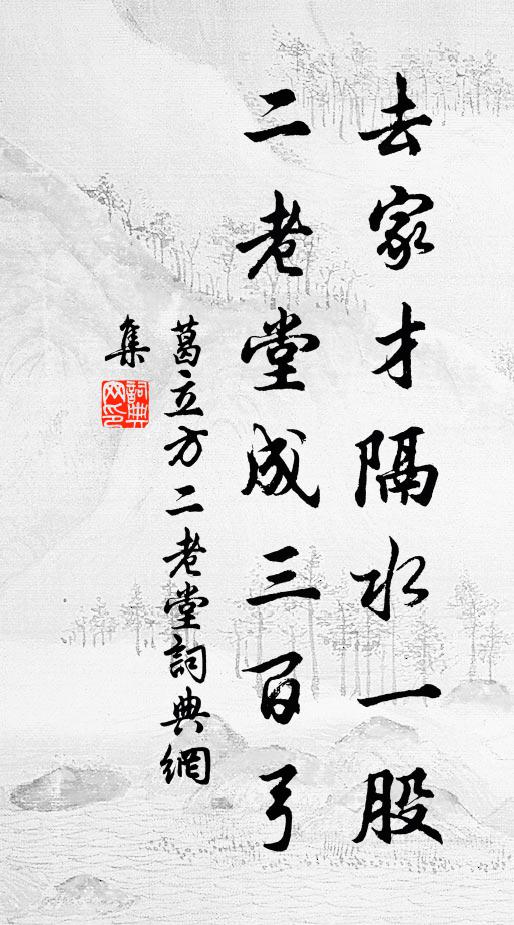 去家才隔水一股
二老堂成三百弓
葛立方二老堂詞典網
集
詞典
网印